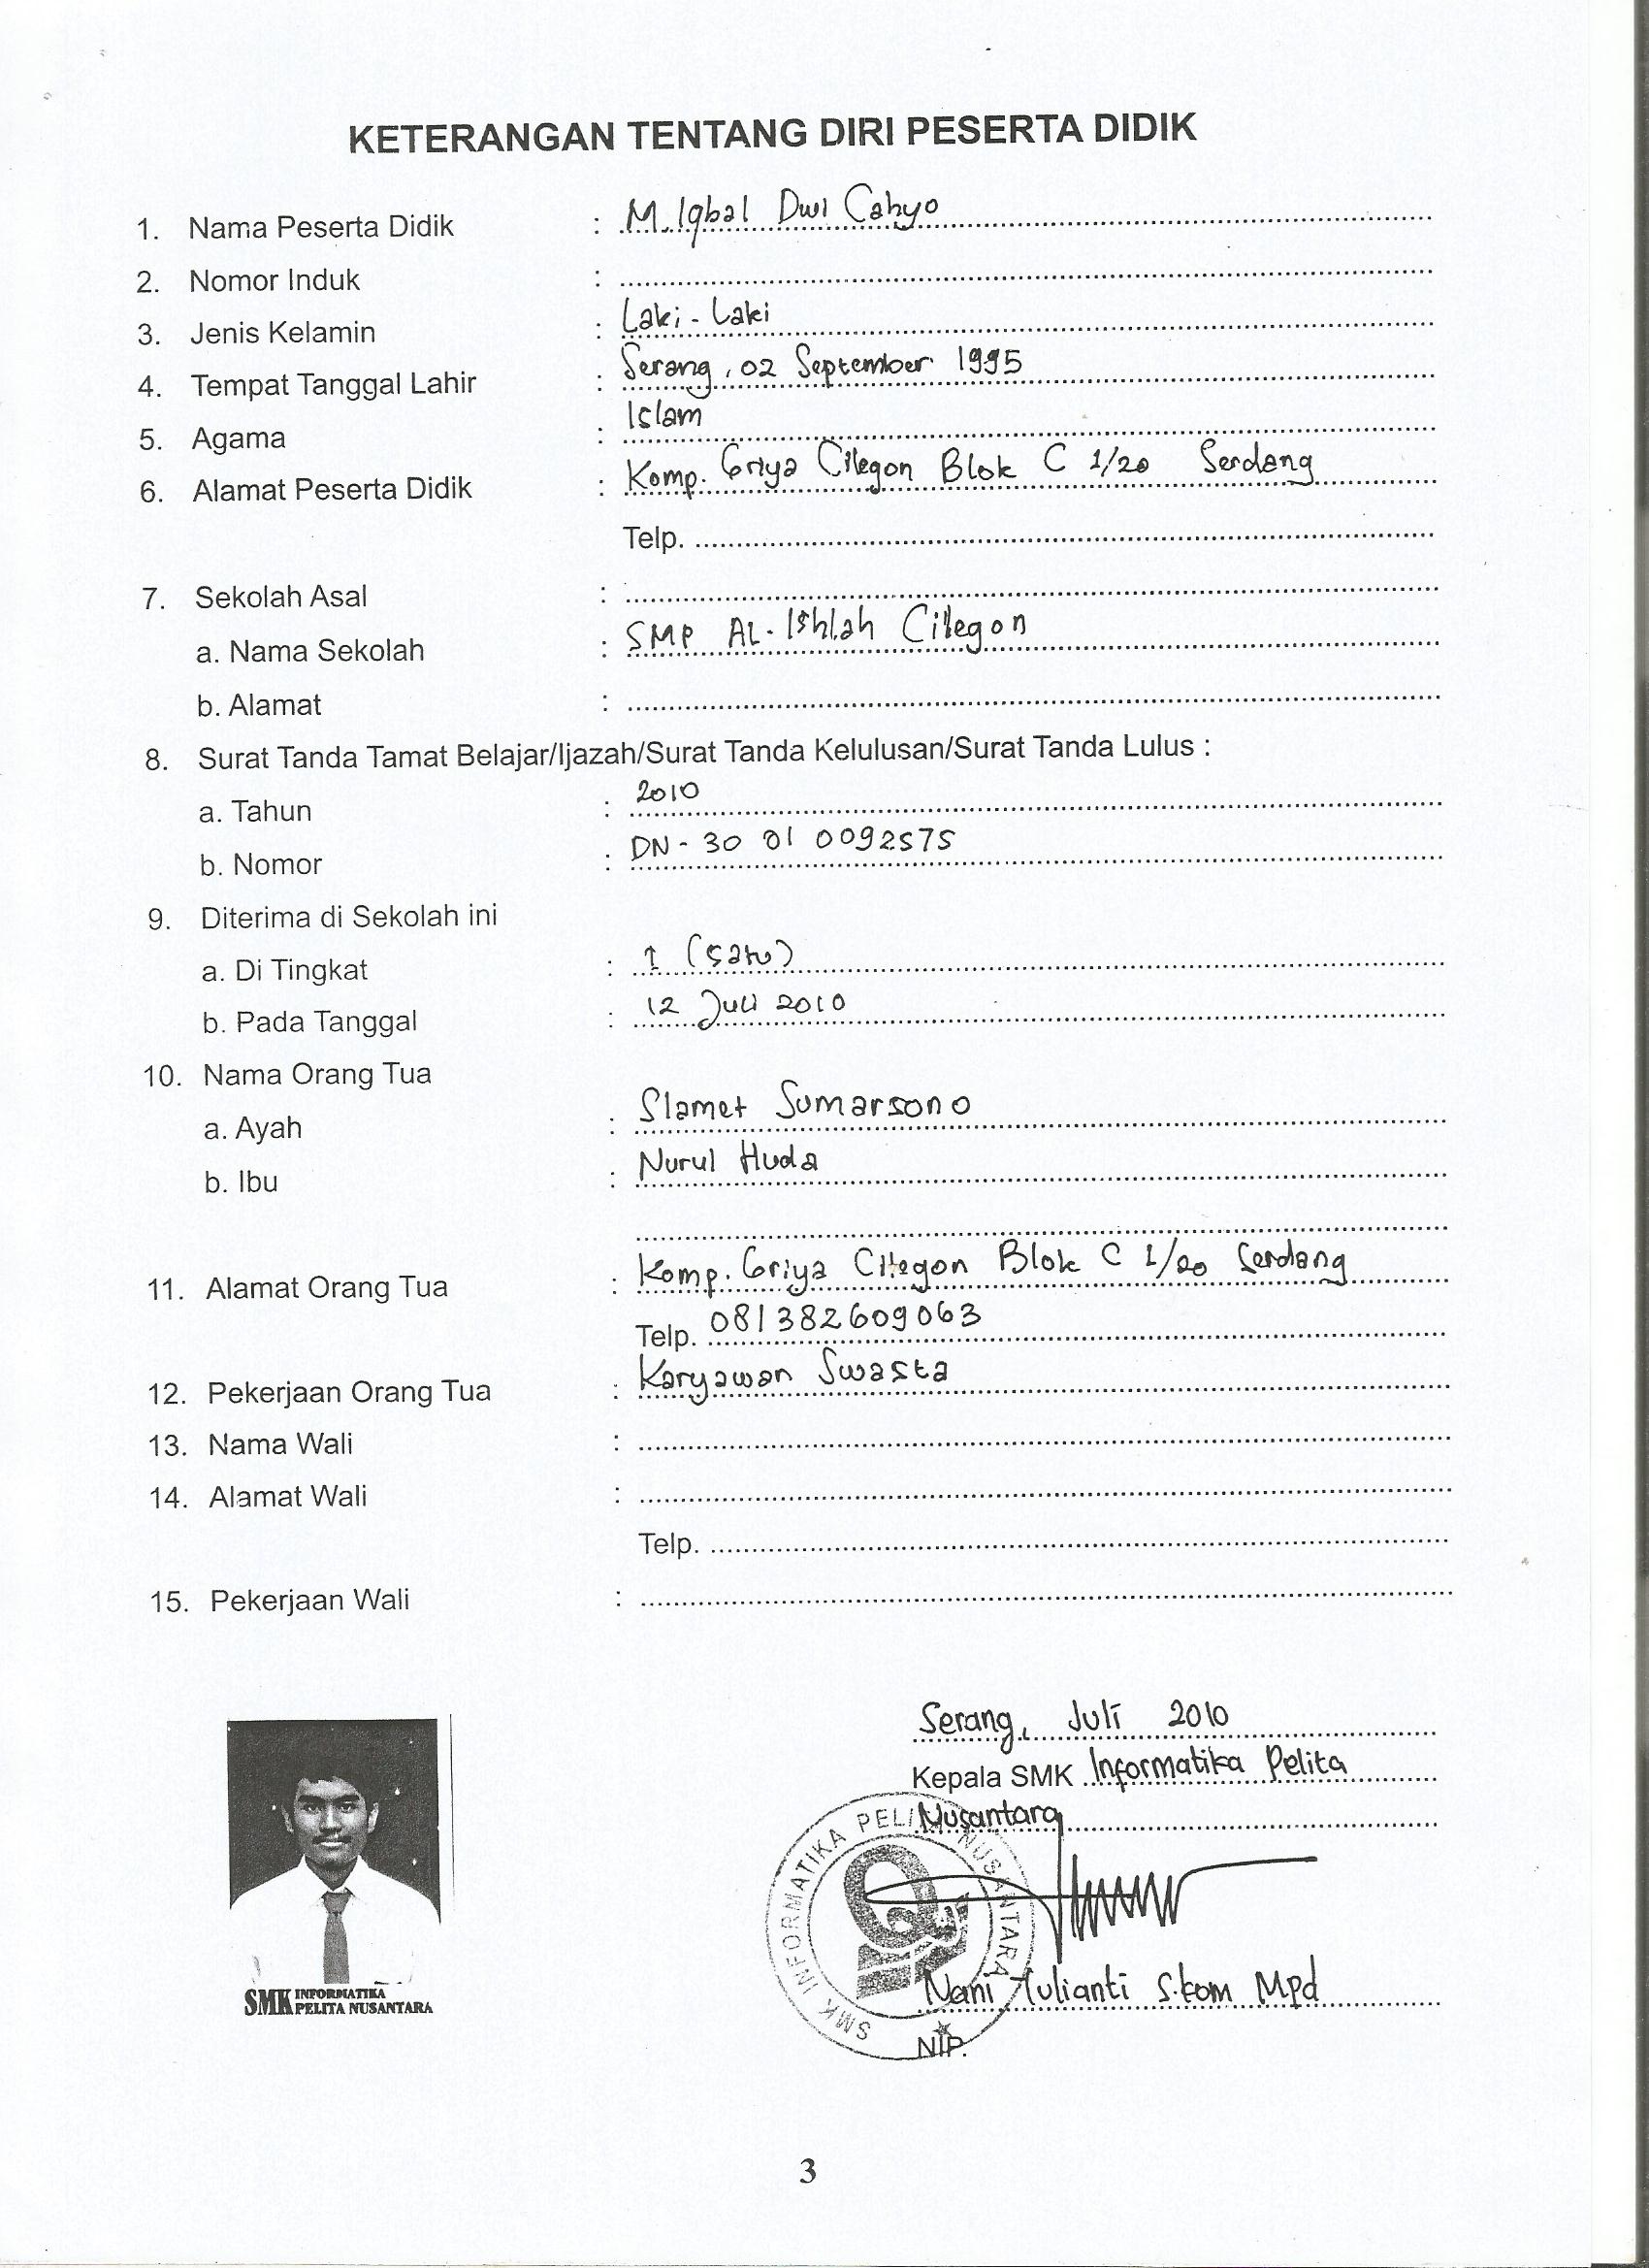 KETERANGAN TENTANG DIRI PESERTA DIDIK
1. Nama Peserta Didik : M. Iqbal Dwi Cahyo
2. Nomor Induk :
3. Jenis Kelamin : Laki - Laki
4. Tempat Tanggal Lahir : Serang, 02 September 1995
5. Agama : Islam
6. Alamat Peserta Didik : Komp. Griya Cilegon Blok C 1/20 Serdang
Telp.
7. Sekolah Asal :
a. Nama Sekolah : SMP AL-Ishlah Cilegon
b. Alamat :
8. Surat Tanda Tamat Belajar/Ijazah/Surat Tanda Kelulusan/Surat Tanda Lulus :
a. Tahun : 2010
b. Nomor : DN - 30 01 0092575
9. Diterima di Sekolah ini
a. Di Tingkat : 1 (satu)
b. Pada Tanggal : 12 Juli 2010
10. Nama Orang Tua
a. Ayah : Slamet Sumarsono
b. Ibu : Nurul Huda
11. Alamat Orang Tua : Komp. Griya Cilegon Blok C 1/20 Serdang
Telp. 081382609063
12. Pekerjaan Orang Tua : Karyawan Swasta
13. Nama Wali :
14. Alamat Wali :
Telp.
15. Pekerjaan Wali :
Serang, Juli 2010
Kepala SMK Informatika Pelita
Nusantara
SMK INFORMATIKA PELITA NUSANTARA
Nani Yulianti S.kom Mpd
NIP.
SMK INFORMATIKA
PELITA NUSANTARA
3